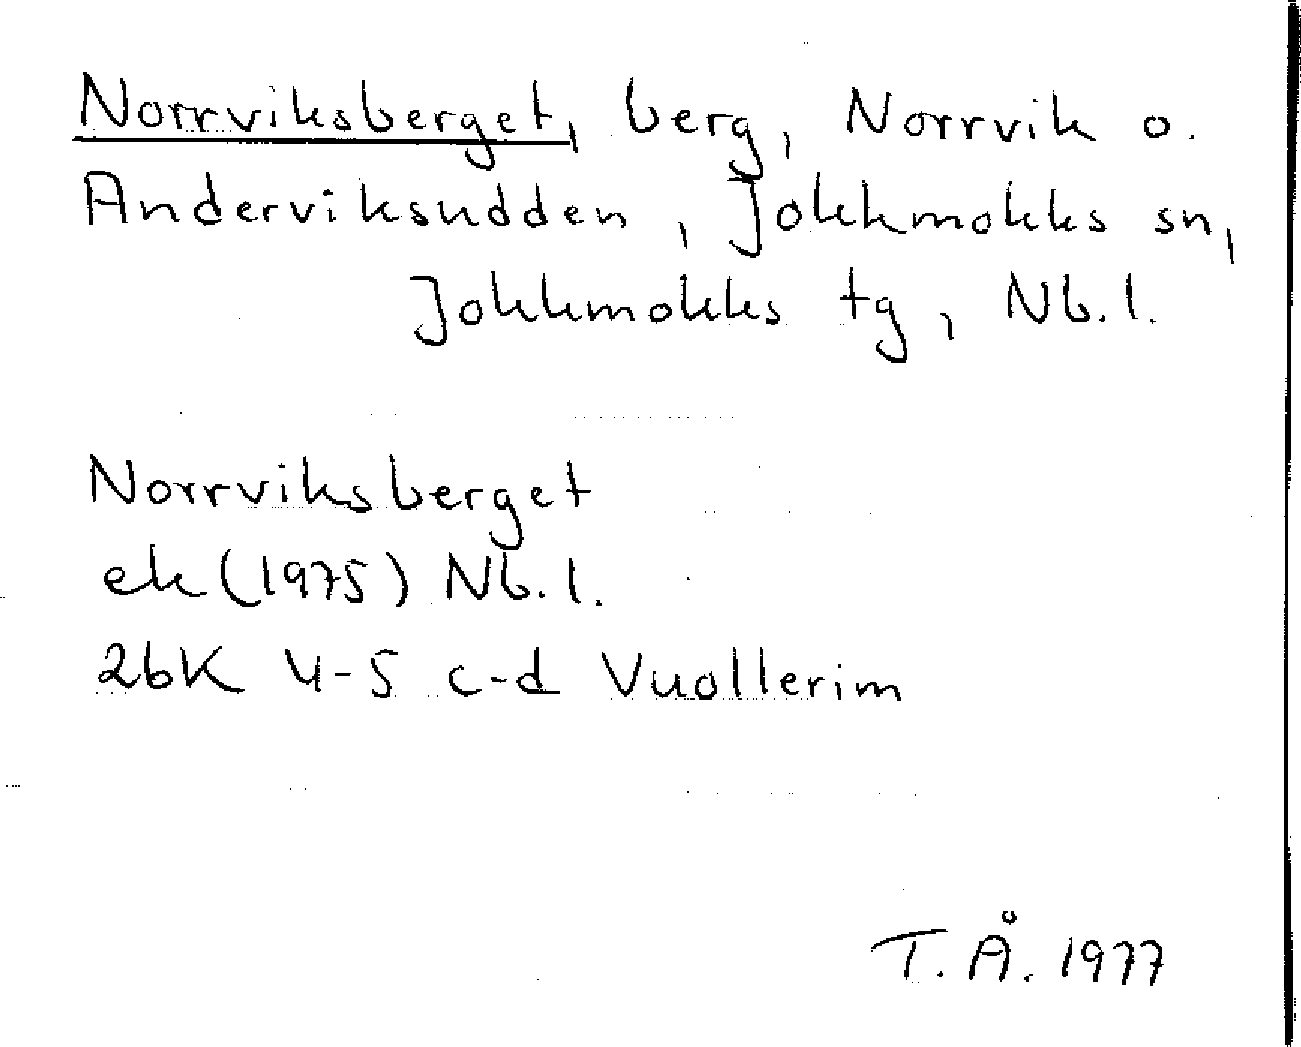 Norrviksberget, berg, Norrvik o.
Anderviksudden, Jokkmokks sn,
Jokkmokks tg, Nb.l.
Norrviksberget
ek (1975) Nb.l.
26K 4-5 c-d Vuollerim
T.Å. 1977